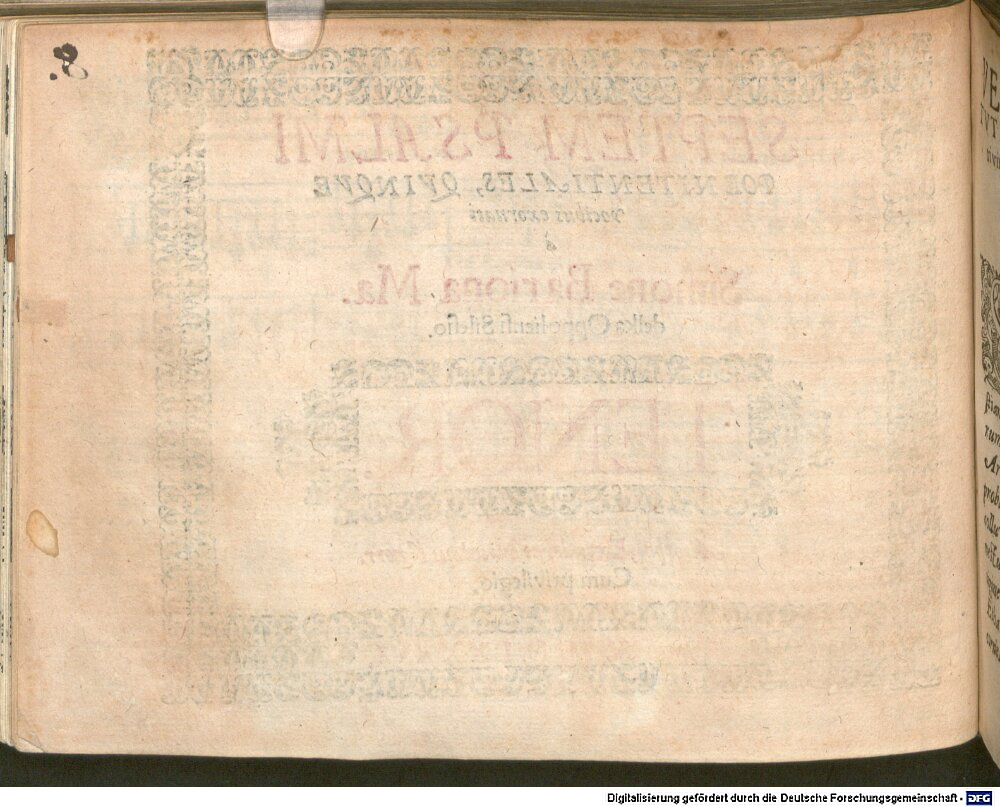 8.
SEPTEM PSALMI
POENITENTIALES, QVINQVE
vocibus exornati
à
Simone Bariona Ma.
delka Oppoliensi Silesio.
TENOR.
Cum privilegio.
Digitalisierung gefördert durch die Deutsche Forschungsgemeinschaft - DFG